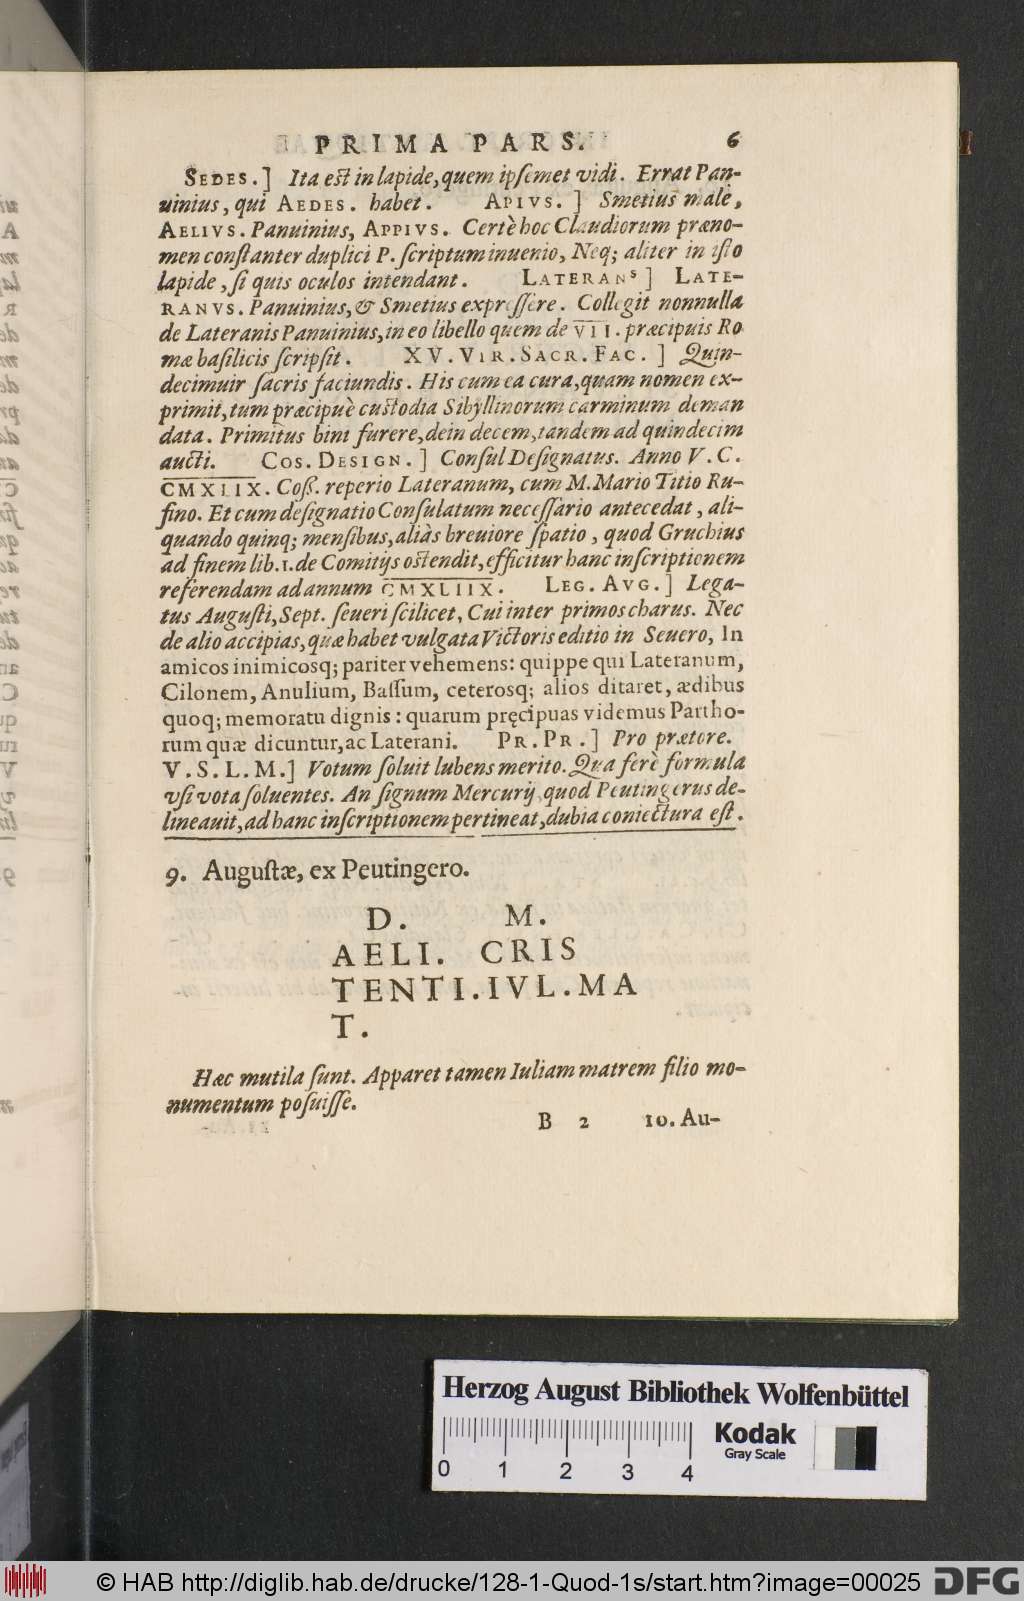 PRIMA PARS. 6
SEDES.] Ita est in lapide, quem ipſemet vidi. Errat Pan-
uinius, qui AEDES. habet. APIVS.] Smetius malè,
AELIVS. Panuinius, APPIVS. Certè hoc Claudiorum præno-
men conſtanter duplici P. ſcriptum inuenio, Neq; aliter in iſto
lapide, ſi quis oculos intendant. LATERANˢ] LATE-
RANVS. Panuinius, & Smetius expreſſére. Collegit nonnulla
de Lateranis Panuinius, in eo libello quem de V̅I̅I̅. præcipuis Ro
mæ baſilicis ſcripſit. XV. VIR. SACR. FAC.] Quin-
decimuir ſacris faciundis. His cum ea cura, quam nomen ex-
primit, tum præcipuè custodia Sibyllinorum carminum deman
data. Primitus bini fuere, dein decem, tandem ad quindecim
aucti. COS. DESIGN.] Conſul Deſignatus. Anno V. C.
C̅M̅X̅L̅I̅X̅. Coß. reperio Lateranum, cum M. Mario Titio Ru-
fino. Et cum deſignatio Conſulatum neceſſario antecedat, ali-
quando quinq; menſibus, aliàs breuiore ſpatio, quod Gruchius
ad finem lib. 1. de Comitijs ostendit, efficitur hanc inſcriptionem
referendam ad annum C̅M̅X̅L̅I̅I̅X̅. LEG. AVG.] Lega-
tus Auguſti, Sept. ſeueri ſcilicet, Cui inter primos charus. Nec
de alio accipias, quæ habet vulgata Victoris editio in Seuero, In
amicos inimicosq; pariter vehemens: quippe qui Lateranum,
Cilonem, Anulium, Baſſum, ceterosq; alios ditaret, ædibus
quoq; memoratu dignis: quarum pręcipuas videmus Partho-
rum quæ dicuntur, ac Laterani. PR. PR.] Pro prætore.
V. S. L. M.] Votum ſoluit lubens merito. Qua ferè formula
vſi vota ſoluentes. An ſignum Mercurij quod Peutingerus de-
lineauit, ad hanc inſcriptionem pertineat, dubia coniectura eſt.
9. Auguſtæ, ex Peutingero.
D. M.
AELI. CRIS
TENTI. IVL. MA
T.
Hæc mutila ſunt. Apparet tamen Iuliam matrem filio mo-
numentum poſuiſſe.
B 2 10. Au-
Herzog August Bibliothek Wolfenbüttel
Kodak
Gray Scale
0 1 2 3 4
© HAB http://diglib.hab.de/drucke/128-1-Quod-1s/start.htm?image=00025 DFG